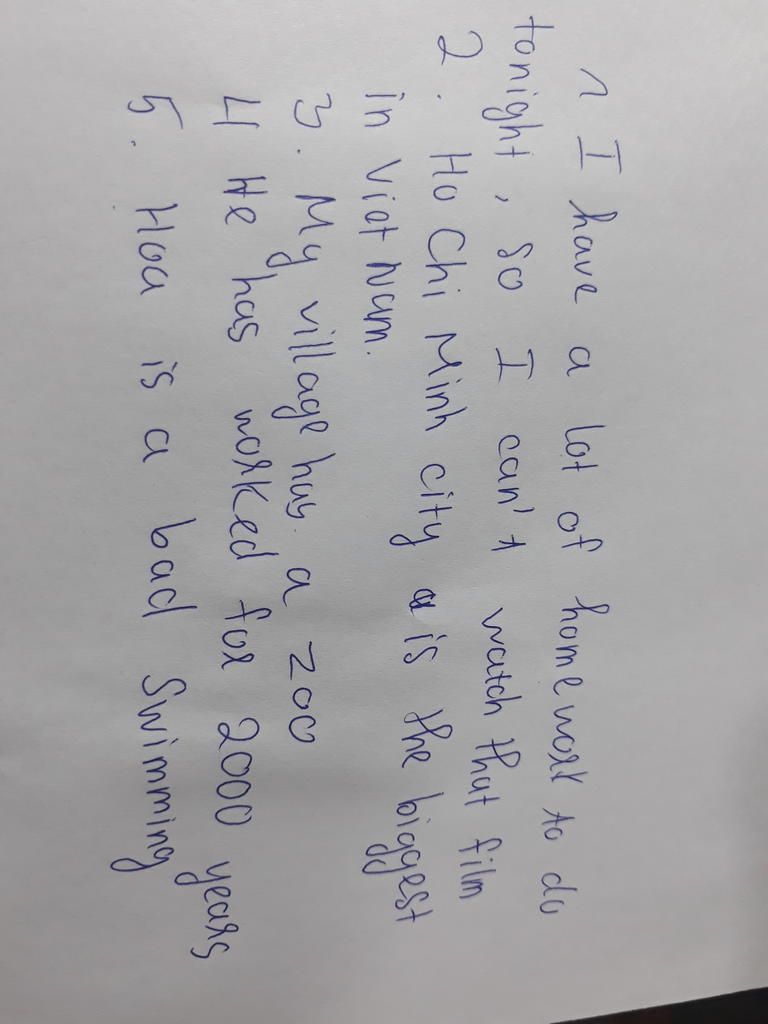 1 I have a lot of homework to do
tonight, so I can't watch that film
2. Ho Chi Minh city is the biggest
in Viet Nam.
3. My village has a zoo
4 He has worked for 2000 years
5. Hoa is a bad swimming